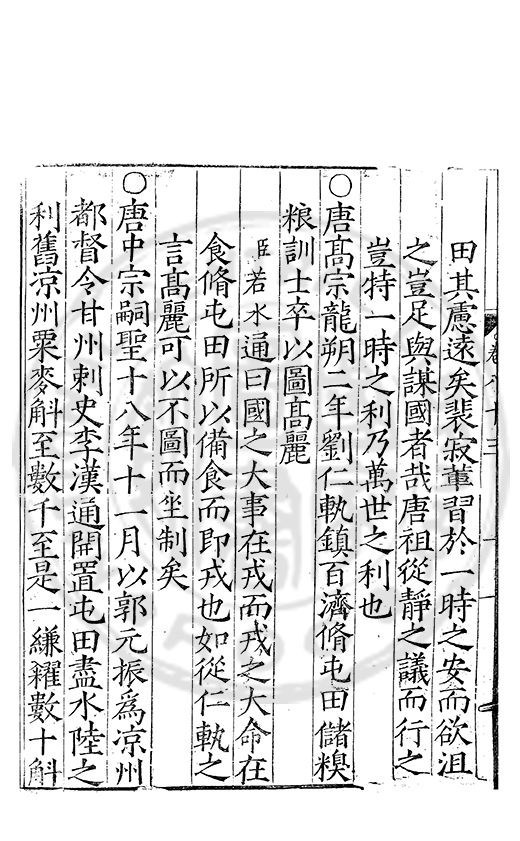 卷八十三
田其慮遠矣裴寂輩習於一時之安而欲沮
之豈足與謀國者哉唐祖從靜之議而行之
豈特一時之利乃萬世之利也
○唐髙宗龍朔二年劉仁軌鎮百濟脩屯田儲糗
粮訓士卒以圖髙麗
臣若水通曰國之大事在戎而戎之大命在
食脩屯田所以備食而即戎也如從仁軌之
言髙麗可以不圖而坐制矣
○唐中宗嗣聖十八年十一月以郭元振爲凉州
都督令甘州刺史李漢通開置屯田盡水陸之
利舊凉州粟麥斛至數千至是一縑糴數十斛